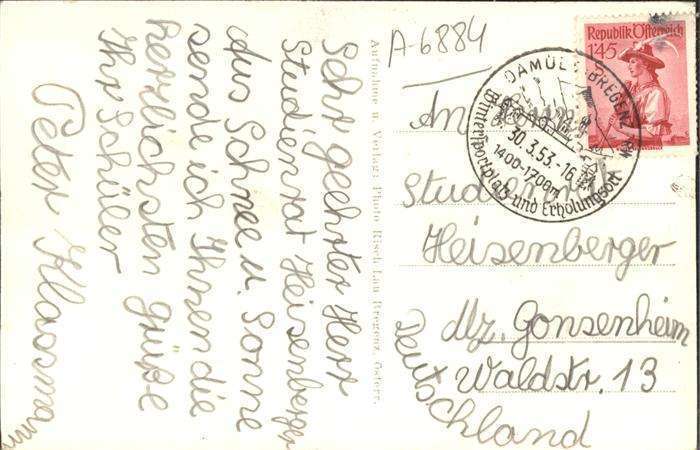 A-6884
Sehr geehrter Herr
Studienrat Heisenberger
Aus Schnee u. Sonne
sende ich Ihnen die
herzlichsten Grüße
Ihr Schüler
Peter Klassmann
Aufnahme u. Verlag: Photo Risch-Lau Bregenz, Österr.
Republik Österreich
145
DAMÜLS, BREGENZ
30.3.53-16
1400-1700m
Wintersportplatz und Erholungsort
An
Studienrat
Heisenberger
Mz. Gonsenheim
Waldstr. 13
Deutschland